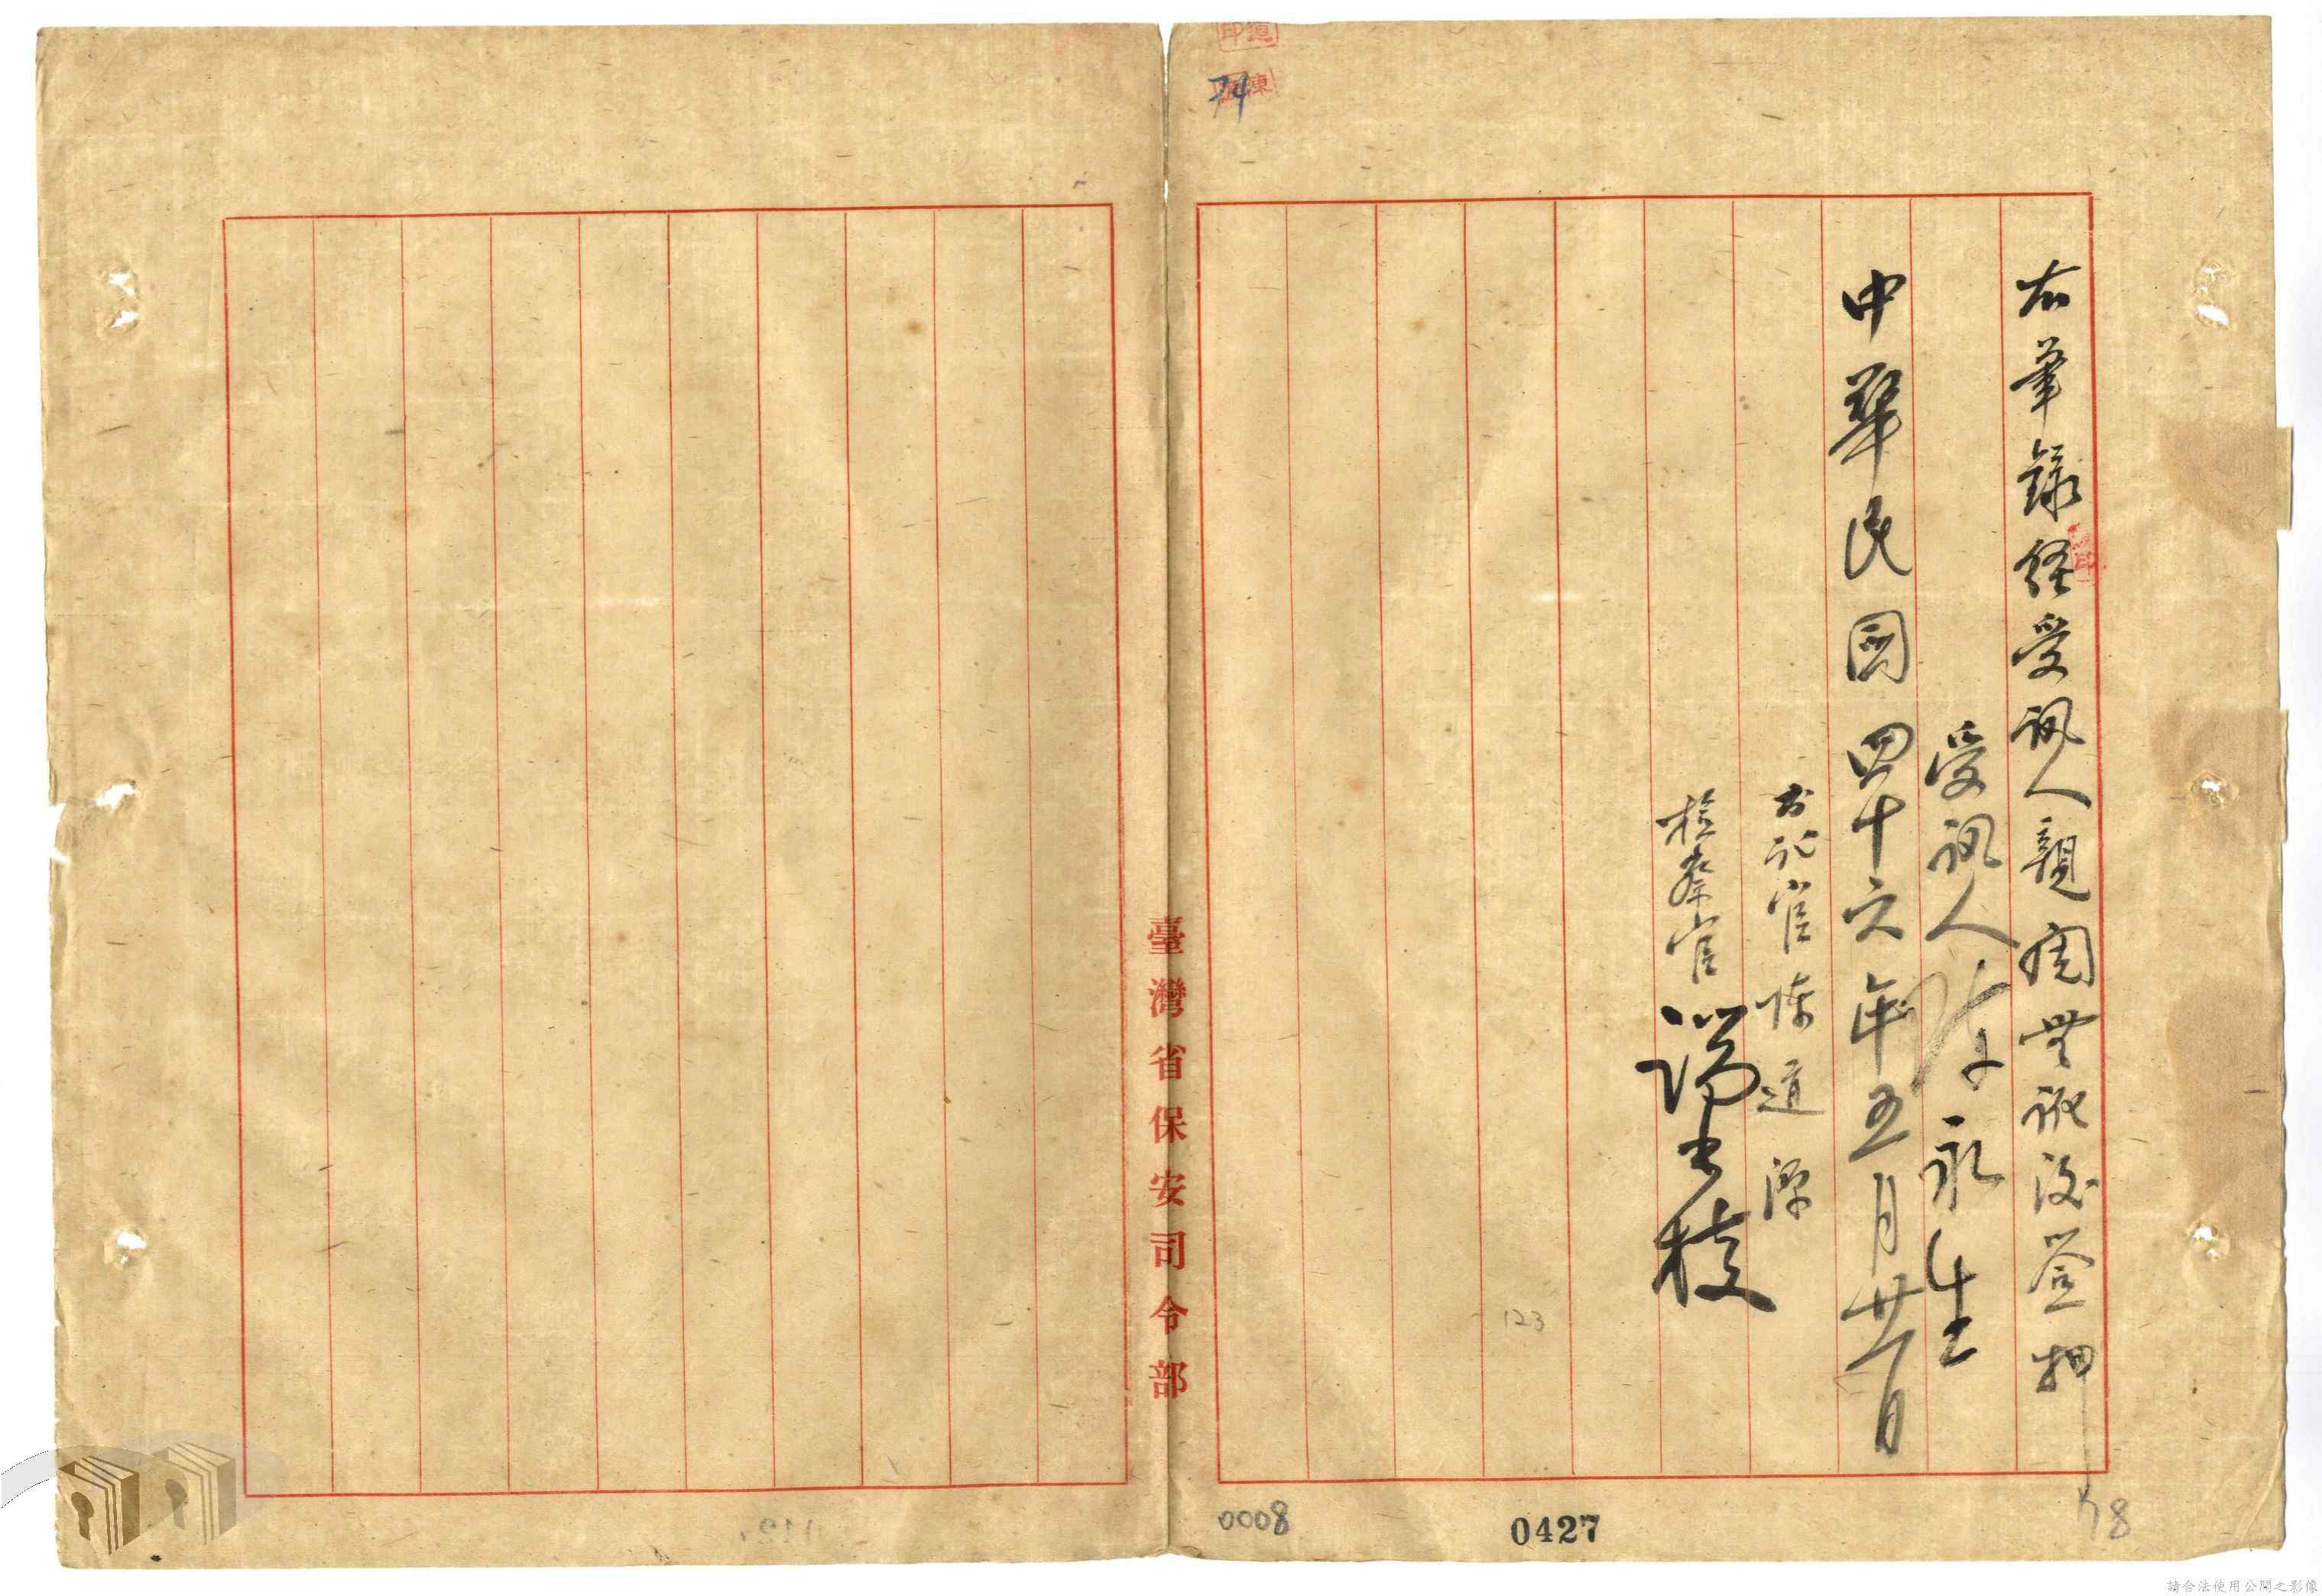 右筆錄經受訊人親閱無訛後簽押
受訊人 陳永生
中華民國四十六年五月廿一日
書記官 陳道淳
檢察官 端木棪
臺灣省保安司令部
74
123
0008
0427
78
請合法使用公開之影像